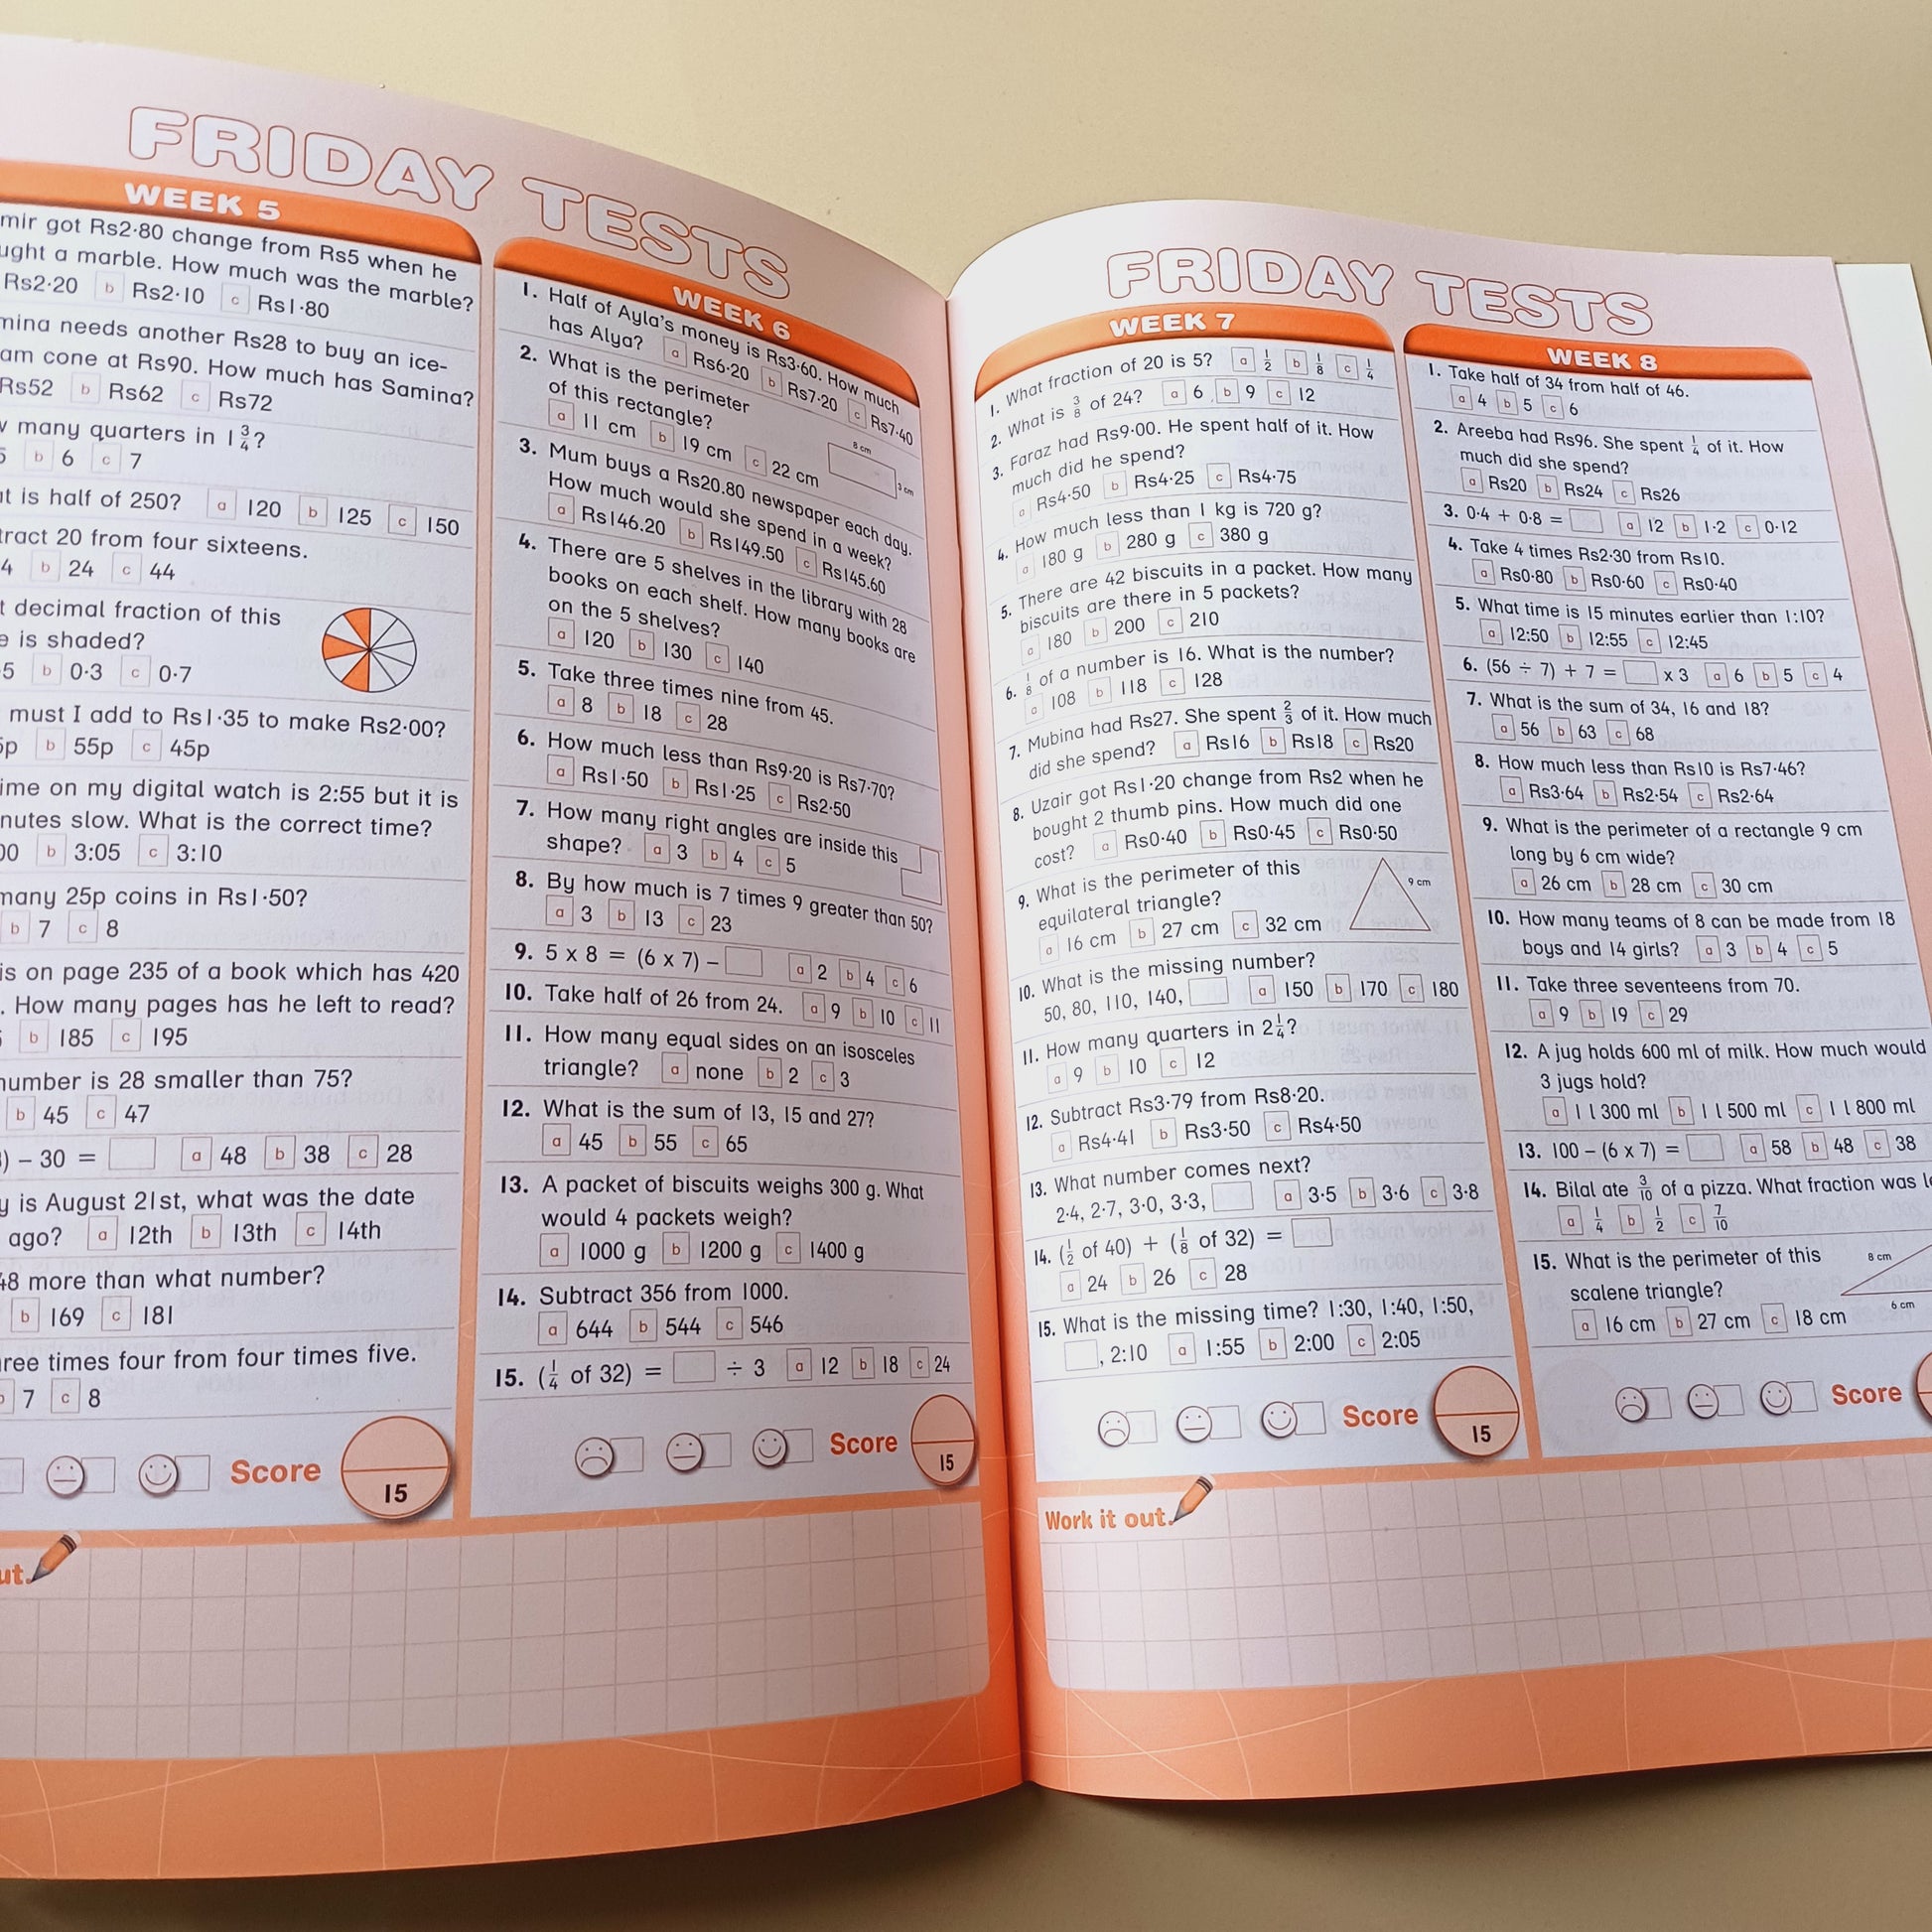 FRIDAY TESTS
WEEK 5
got Rs2·80 change from Rs5 when he
a marble. How much was the marble?
Rs2·20 b Rs2·10 c Rs1·80
needs another Rs28 to buy an ice-
cone at Rs90. How much has Samina?
Rs52 b Rs62 c Rs72
many quarters in 1 3/4?
b 6 c 7
is half of 250? a 120 b 125 c 150
20 from four sixteens.
b 24 c 44
decimal fraction of this
is shaded?
b 0·3 c 0·7
must I add to Rs1·35 to make Rs2·00?
b 55p c 45p
on my digital watch is 2:55 but it is
slow. What is the correct time?
b 3:05 c 3:10
25p coins in Rs1·50?
b 7 c 8
is on page 235 of a book which has 420
. How many pages has he left to read?
b 185 c 195
is 28 smaller than 75?
b 45 c 47
) – 30 = a 48 b 38 c 28
is August 21st, what was the date
ago? a 12th b 13th c 14th
more than what number?
b 169 c 181
times four from four times five.
7 c 8
Score
15
WEEK 6
1. Half of Ayla's money is Rs3·60. How much
has Alya? a Rs6·20 b Rs7·20 c Rs7·40
2. What is the perimeter
of this rectangle?
a 11 cm b 19 cm c 22 cm
8 cm
3 cm
3. Mum buys a Rs20.80 newspaper each day.
How much would she spend in a week?
a Rs146.20 b Rs149.50 c Rs145.60
4. There are 5 shelves in the library with 28
books on each shelf. How many books are
on the 5 shelves?
a 120 b 130 c 140
5. Take three times nine from 45.
a 8 b 18 c 28
6. How much less than Rs9·20 is Rs7·70?
a Rs1·50 b Rs1·25 c Rs2·50
7. How many right angles are inside this
shape? a 3 b 4 c 5
8. By how much is 7 times 9 greater than 50?
a 3 b 13 c 23
9. 5 x 8 = (6 x 7) – a 2 b 4 c 6
10. Take half of 26 from 24. a 9 b 10 c 11
11. How many equal sides on an isosceles
triangle? a none b 2 c 3
12. What is the sum of 13, 15 and 27?
a 45 b 55 c 65
13. A packet of biscuits weighs 300 g. What
would 4 packets weigh?
a 1000 g b 1200 g c 1400 g
14. Subtract 356 from 1000.
a 644 b 544 c 546
15. (1/4 of 32) = ÷ 3 a 12 b 18 c 24
Score
15
FRIDAY TESTS
WEEK 7
1. What fraction of 20 is 5? a 1/2 b 1/8 c 1/4
2. What is 3/8 of 24? a 6 b 9 c 12
3. Faraz had Rs9·00. He spent half of it. How
much did he spend?
a Rs4·50 b Rs4·25 c Rs4·75
4. How much less than 1 kg is 720 g?
a 180 g b 280 g c 380 g
5. There are 42 biscuits in a packet. How many
biscuits are there in 5 packets?
a 180 b 200 c 210
6. 1/8 of a number is 16. What is the number?
a 108 b 118 c 128
7. Mubina had Rs27. She spent 2/3 of it. How much
did she spend? a Rs16 b Rs18 c Rs20
8. Uzair got Rs1·20 change from Rs2 when he
bought 2 thumb pins. How much did one
cost? a Rs0·40 b Rs0·45 c Rs0·50
9. What is the perimeter of this
equilateral triangle?
a 16 cm b 27 cm c 32 cm
9 cm
10. What is the missing number?
50, 80, 110, 140, a 150 b 170 c 180
11. How many quarters in 2 1/4?
a 9 b 10 c 12
12. Subtract Rs3·79 from Rs8·20.
a Rs4·41 b Rs3·50 c Rs4·50
13. What number comes next?
2·4, 2·7, 3·0, 3·3, a 3·5 b 3·6 c 3·8
14. (1/2 of 40) + (1/8 of 32) =
a 24 b 26 c 28
15. What is the missing time? 1:30, 1:40, 1:50,
, 2:10 a 1:55 b 2:00 c 2:05
Score
15
Work it out.
WEEK 8
1. Take half of 34 from half of 46.
a 4 b 5 c 6
2. Areeba had Rs96. She spent 1/4 of it. How
much did she spend?
a Rs20 b Rs24 c Rs26
3. 0·4 + 0·8 = a 12 b 1·2 c 0·12
4. Take 4 times Rs2·30 from Rs10.
a Rs0·80 b Rs0·60 c Rs0·40
5. What time is 15 minutes earlier than 1:10?
a 12:50 b 12:55 c 12:45
6. (56 ÷ 7) + 7 = x 3 a 6 b 5 c 4
7. What is the sum of 34, 16 and 18?
a 56 b 63 c 68
8. How much less than Rs10 is Rs7·46?
a Rs3·64 b Rs2·54 c Rs2·64
9. What is the perimeter of a rectangle 9 cm
long by 6 cm wide?
a 26 cm b 28 cm c 30 cm
10. How many teams of 8 can be made from 18
boys and 14 girls? a 3 b 4 c 5
11. Take three seventeens from 70.
a 9 b 19 c 29
12. A jug holds 600 ml of milk. How much would
3 jugs hold?
a 1 l 300 ml b 1 l 500 ml c 1 l 800 ml
13. 100 – (6 x 7) = a 58 b 48 c 38
14. Bilal ate 3/10 of a pizza. What fraction was
a 1/4 b 1/2 c 7/10
15. What is the perimeter of this
scalene triangle?
a 16 cm b 27 cm c 18 cm
8 cm
6 cm
Score